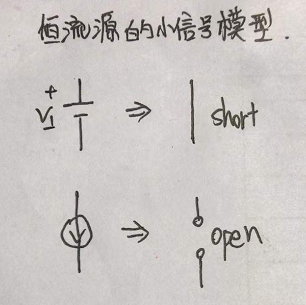 恒流源的小信号模型.
+
V1 ⇒ short
⇒ open